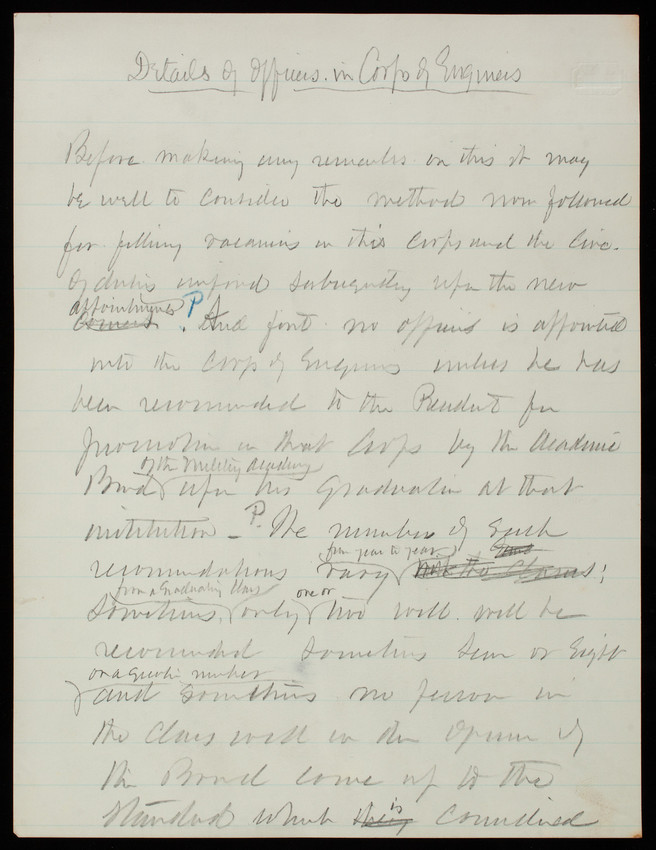 Details of Officers in Corps of Engineers
Before making any remarks on this it may
be well to consider the method now followed
for filling vacancies in this Corps and the line
of duties imposed subsequently upon the new
appointments P
. And first no officer is appointed
into the Corps of Engineers unless he has
been recommended to the President for
promotion in that Corps by the Academic
of the Military Academy
Board upon his Graduation at that
institution – P. The number of such
from year to year
recommendations vary with the Classes;
from a Graduating Class one or
Sometimes, only two will be
recommended sometimes seven or Eight
or a greater number
and sometimes no person in
the Class will in the Opinion of
the Board come up to the
is
Standard which they considered